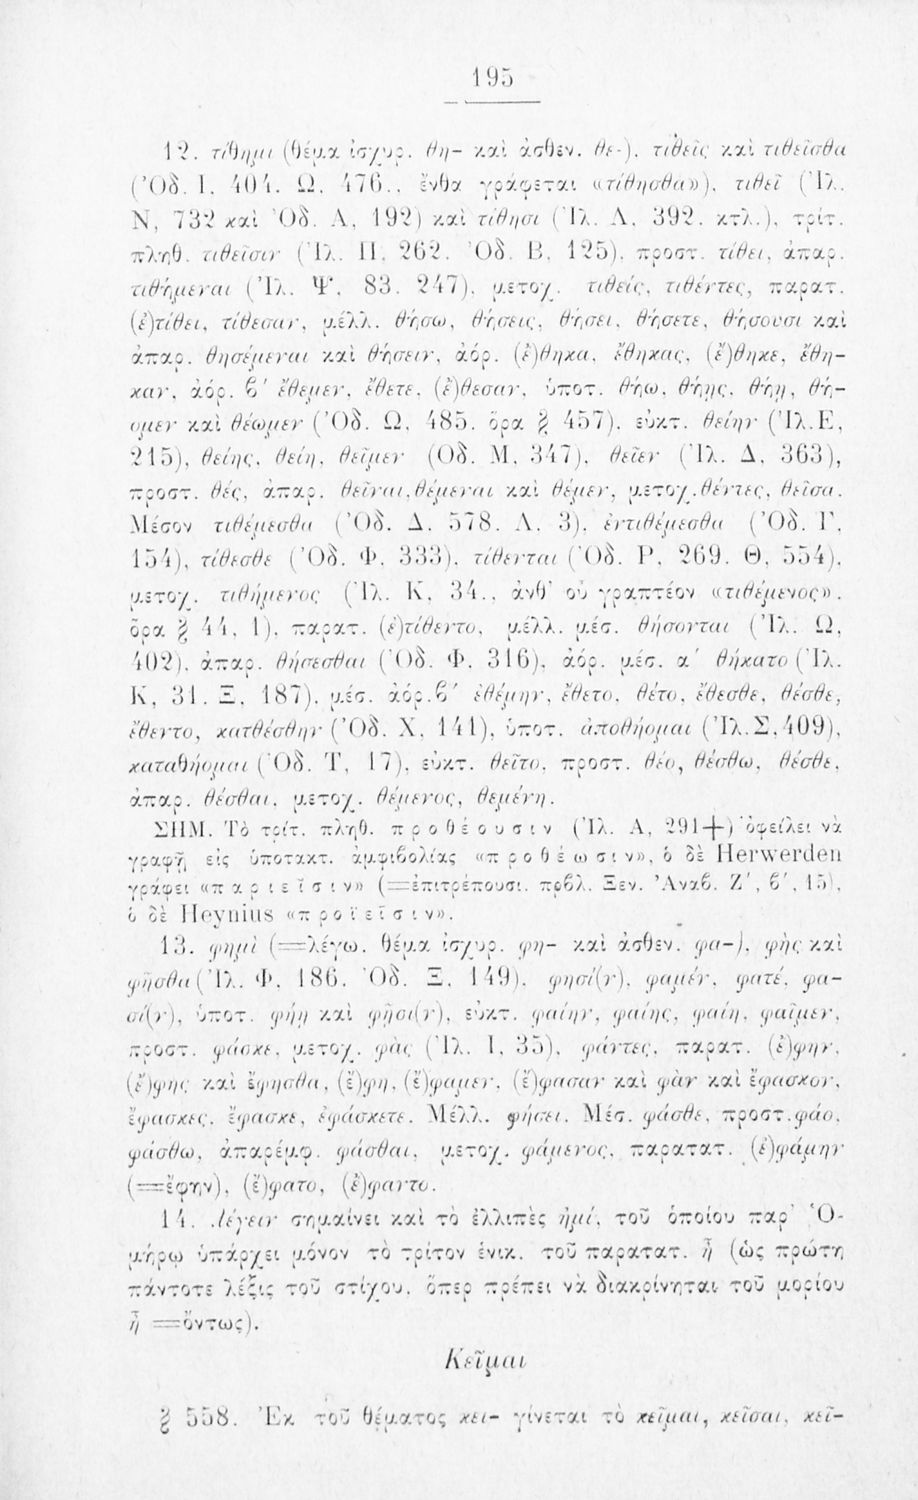 195
12. τίθημι (θέμα ἰσχυρ. θη- καὶ ἀσθεν. θε-). τιθεῖς καὶ τιθεῖσθα
(Ὀδ. Ι, 404. Ω, 476., ἔνθα γράφεται «τίθησθα»), τιθεῖ (Ἰλ.
Ν, 732 καὶ Ὀδ. Α, 192) καὶ τίθησι (Ἰλ. Δ. 392. κτλ.), τρίτ.
πληθ. τιθεῖσιν (Ἰλ. Π, 262. Ὀδ. Β, 125), προστ. τίθει, ἀπαρ.
τιθήμεναι (Ἰλ. Ψ, 83. 247), μετοχ. τιθείς, τιθέντες, παρατ.
(ἐ)τίθει, τίθεσαν, μέλλ. θήσω, θήσεις, θήσει, θήσετε, θήσουσι καὶ
ἀπαρ. θησέμεναι καὶ θήσειν, ἀόρ. (ἔ)θηκα, ἔθηκας, (ἔ)θηκε, ἔθη-
καν, ἀόρ. β΄ ἔθεμεν, ἔθετε, (ἔ)θεσαν, ὑποτ. θήω, θήῃς, θήῃ, θή-
ομεν καὶ θέωμεν (Ὀδ. Ω, 485. ὅρα § 457), εὐκτ. θείην (Ἰλ.Ε,
215), θείης, θείη, θεῖμεν (Ὀδ. Μ, 347), θεῖεν (Ἰλ. Δ, 363),
προστ. θές, ἀπαρ. θεῖναι,θέμεναι καὶ θέμεν, μετοχ.θέντες, θεῖσα.
Μέσον τιθέμεσθα (Ὀδ. Δ. 578. Λ. 3), ἐντιθέμεσθα (Ὀδ. Γ,
154), τίθεσθε (Ὀδ. Φ, 333), τίθενται (Ὀδ. Ρ, 269. Θ, 554),
μετοχ. τιθήμενος (Ἰλ. Κ, 34., ἀνθ' οὗ γραπτέον «τιθέμενος».
ὅρα § 44, 1), παρατ. (ἐ)τίθεντο, μέλλ. μέσ. θήσονται (Ἰλ. Ω,
402), ἀπαρ. θήσεσθαι (Ὀδ. Φ, 316), ἀόρ. μέσ. α΄ θήκατο (Ἰλ.
Κ, 31. Ξ, 187), μέσ. ἀόρ.β΄ ἐθέμην, ἔθετο, θέτο, ἔθεσθε, θέσθε,
ἔθεντο, κατθέσθην (Ὀδ. Χ, 141), ὑποτ. ἀποθήομαι (Ἰλ.Σ,409),
καταθήομαι (Ὀδ. Τ, 17), εὐκτ. θεῖτο, προστ. θέο, θέσθω, θέσθε,
ἀπαρ. θέσθαι, μετοχ. θέμενος, θεμένη.
ΣΗΜ. Τὸ τρίτ. πληθ. προθέουσιν (Ἰλ. Α, 291+) ὀφείλει νὰ
γραφῇ εἰς ὑποτακτ. ἀμφιβολίας «προθέωσιν», ὁ δὲ Herwerden
γράφει «παριεῖσιν» (=ἐπιτρέπουσι. πρβλ. Ξεν. Ἀναβ. Ζ΄, β΄, 15),
ὁ δὲ Heynius «προϊεῖσιν».
13. φημὶ (=λέγω. θέμα ἰσχυρ. φη- καὶ ἀσθεν. φα-), φὴς καὶ
φῆσθα (Ἰλ. Φ, 186. Ὀδ. Ξ, 149), φησί(ν), φαμέν, φατέ, φα-
σί(ν), ὑποτ. φήῃ καὶ φῇσι(ν), εὐκτ. φαίην, φαίης, φαίη, φαῖμεν,
προστ. φάσκε, μετοχ. φὰς (Ἰλ. Ι, 35), φάντες, παρατ. (ἔ)φην,
(ἔ)φης καὶ ἔφησθα, (ἔ)φη, (ἔ)φαμεν, (ἔ)φασαν καὶ φὰν καὶ ἔφασκον,
ἔφασκες, ἔφασκε, ἐφάσκετε. Μέλλ. φήσει. Μέσ. φάσθε, προστ.φάο,
φάσθω, ἀπαρέμφ. φάσθαι, μετοχ. φάμενος, παρατατ. (ἐ)φάμην
(=ἔφην), (ἔ)φατο, (ἔ)φαντο.
14. Λέγειν σημαίνει καὶ τὸ ἐλλιπὲς ἠμί, τοῦ ὁποίου παρ' Ὁ-
μήρῳ ὑπάρχει μόνον τὸ τρίτον ἑνικ. τοῦ παρατατ. ἦ (ὡς πρώτη
πάντοτε λέξις τοῦ στίχου, ὅπερ πρέπει νὰ διακρίνηται τοῦ μορίου
ἦ =ὄντως).
Κεῖμαι
§ 558. Ἐκ τοῦ θέματος κει- γίνεται τὸ κεῖμαι, κεῖσαι, κεῖ-